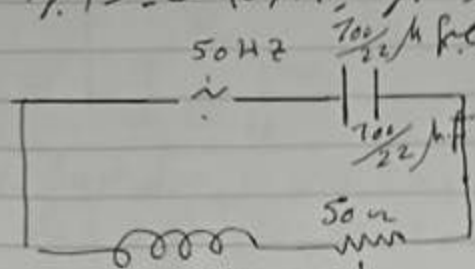 50 HZ
100/22 μ
100/22 μf
50 Ω